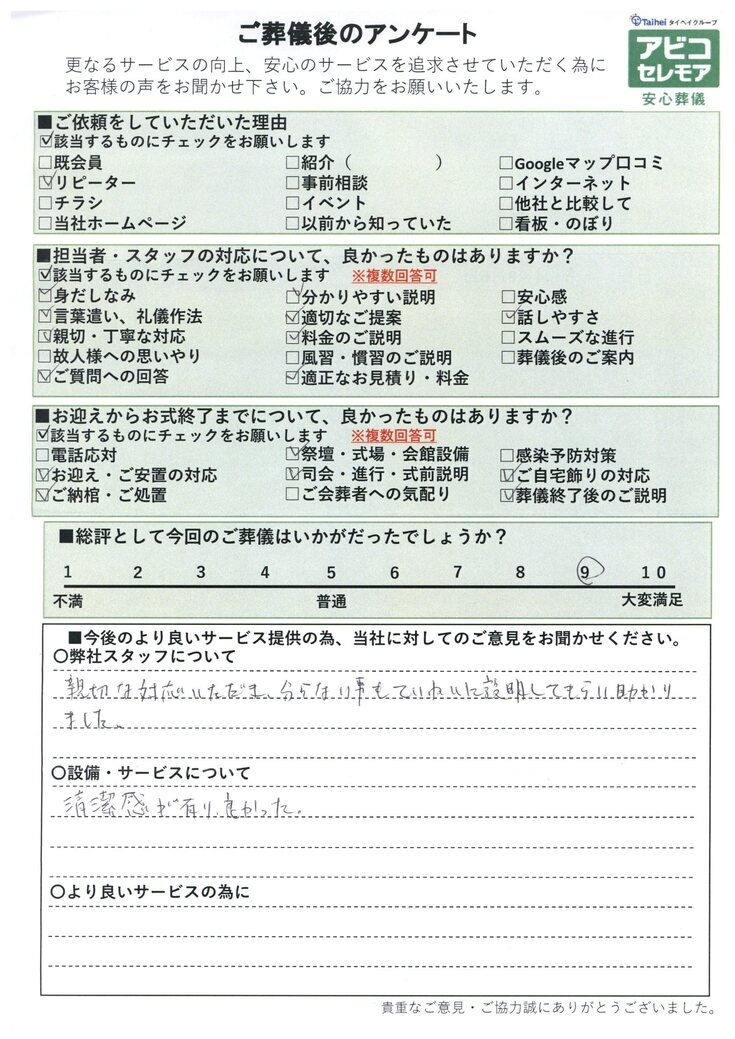 ご葬儀後のアンケート
Taihei タイヘイグループ
アビコ
セレモア
安心葬儀
更なるサービスの向上、安心のサービスを追求させていただく為に
お客様の声をお聞かせ下さい。ご協力をお願いいたします。
■ご依頼をしていただいた理由
☑該当するものにチェックをお願いします
□既会員 □紹介（ ） □Googleマップ口コミ
☑リピーター □事前相談 □インターネット
□チラシ □イベント □他社と比較して
□当社ホームページ □以前から知っていた □看板・のぼり
■担当者・スタッフの対応について、良かったものはありますか？
☑該当するものにチェックをお願いします ※複数回答可
☑身だしなみ ☑分かりやすい説明 □安心感
☑言葉遣い、礼儀作法 ☑適切なご提案 ☑話しやすさ
☑親切・丁寧な対応 ☑料金のご説明 □スムーズな進行
□故人様への思いやり □風習・慣習のご説明 □葬儀後のご案内
☑ご質問への回答 ☑適正なお見積り・料金
■お迎えからお式終了までについて、良かったものはありますか？
☑該当するものにチェックをお願いします ※複数回答可
□電話応対 ☑祭壇・式場・会館設備 □感染予防対策
☑お迎え・ご安置の対応 ☑司会・進行・式前説明 ☑ご自宅飾りの対応
☑ご納棺・ご処置 □ご会葬者への気配り ☑葬儀終了後のご説明
■総評として今回のご葬儀はいかがだったでしょうか？
1 2 3 4 5 6 7 8 9 10
不満 普通 大変満足
■今後のより良いサービス提供の為、当社に対してのご意見をお聞かせください。
〇弊社スタッフについて
親切な対応いただき、分らない事もていねいに説明してもらい助かり
ました。
〇設備・サービスについて
清潔感が有り、良かった。
〇より良いサービスの為に
貴重なご意見・ご協力誠にありがとうございました。